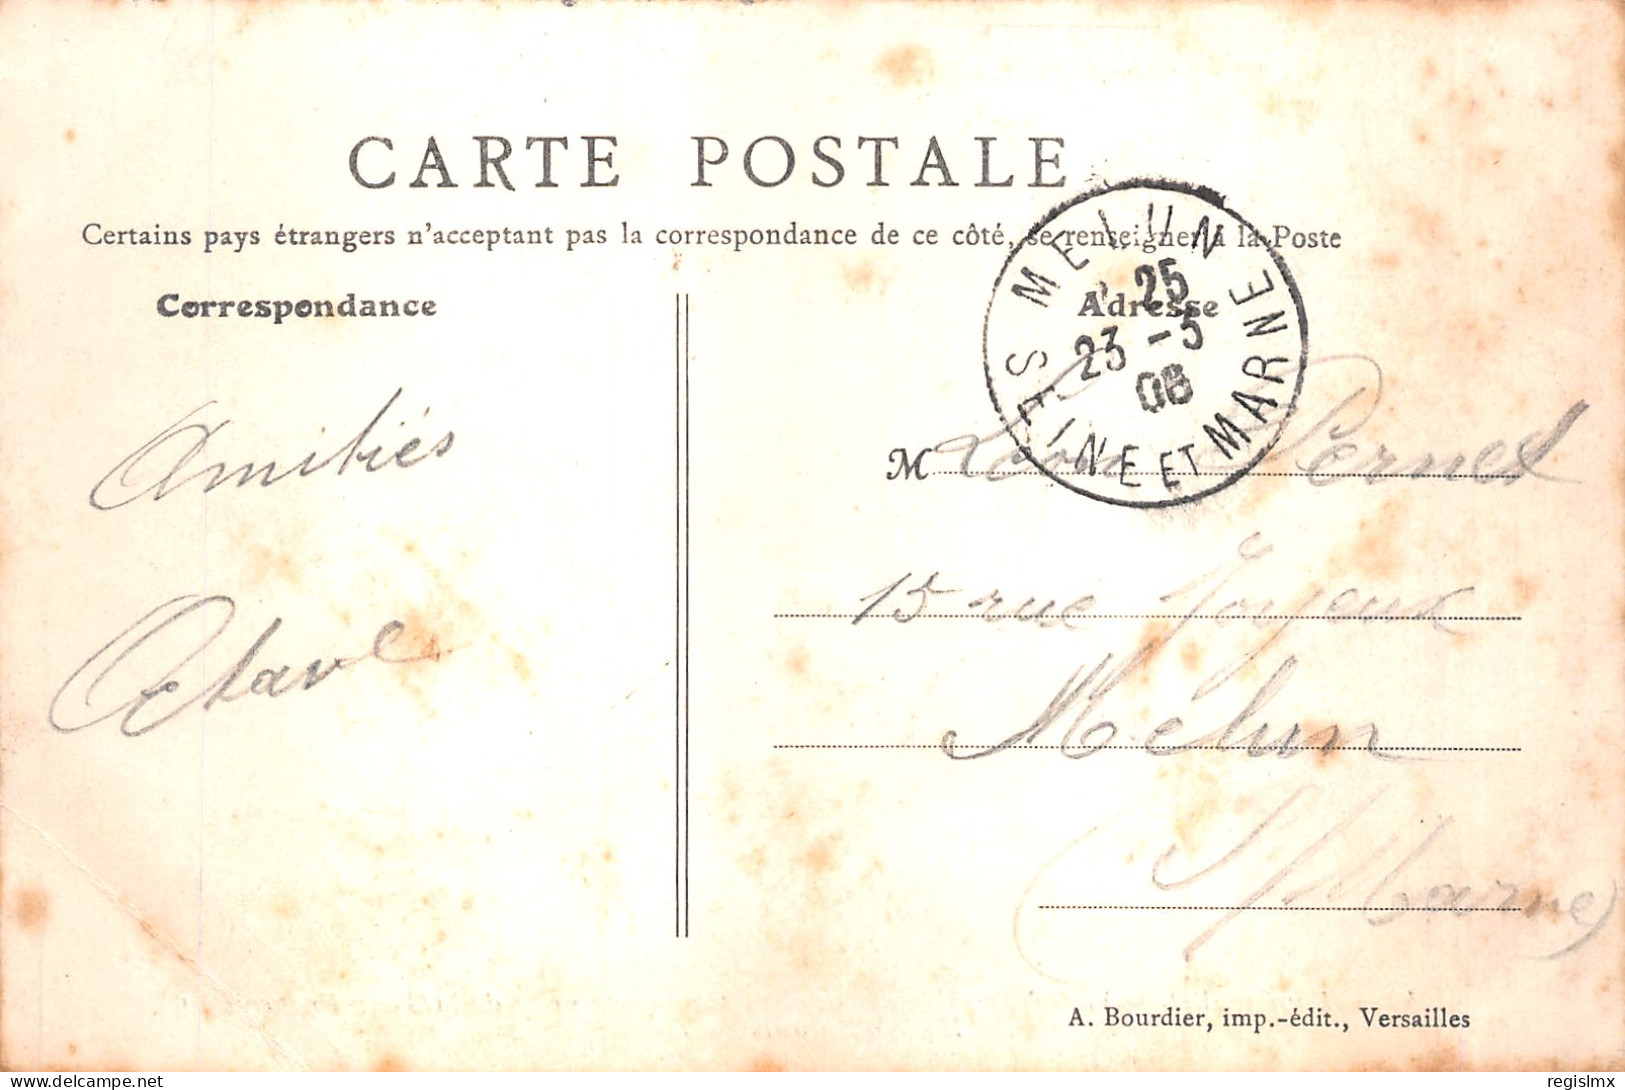 CARTE POSTALE
Certains pays étrangers n'acceptant pas la correspondance de ce côté, se renseigner à la Poste
Correspondance
Adresse
MELUN
25
23 - 5
08
SEINE ET MARNE
Amitiés
Octave
M Pernet
15 rue Joyeux
Melun
(S/Marne)
A. Bourdier, imp.-édit., Versailles
delcampe.net
regislmx